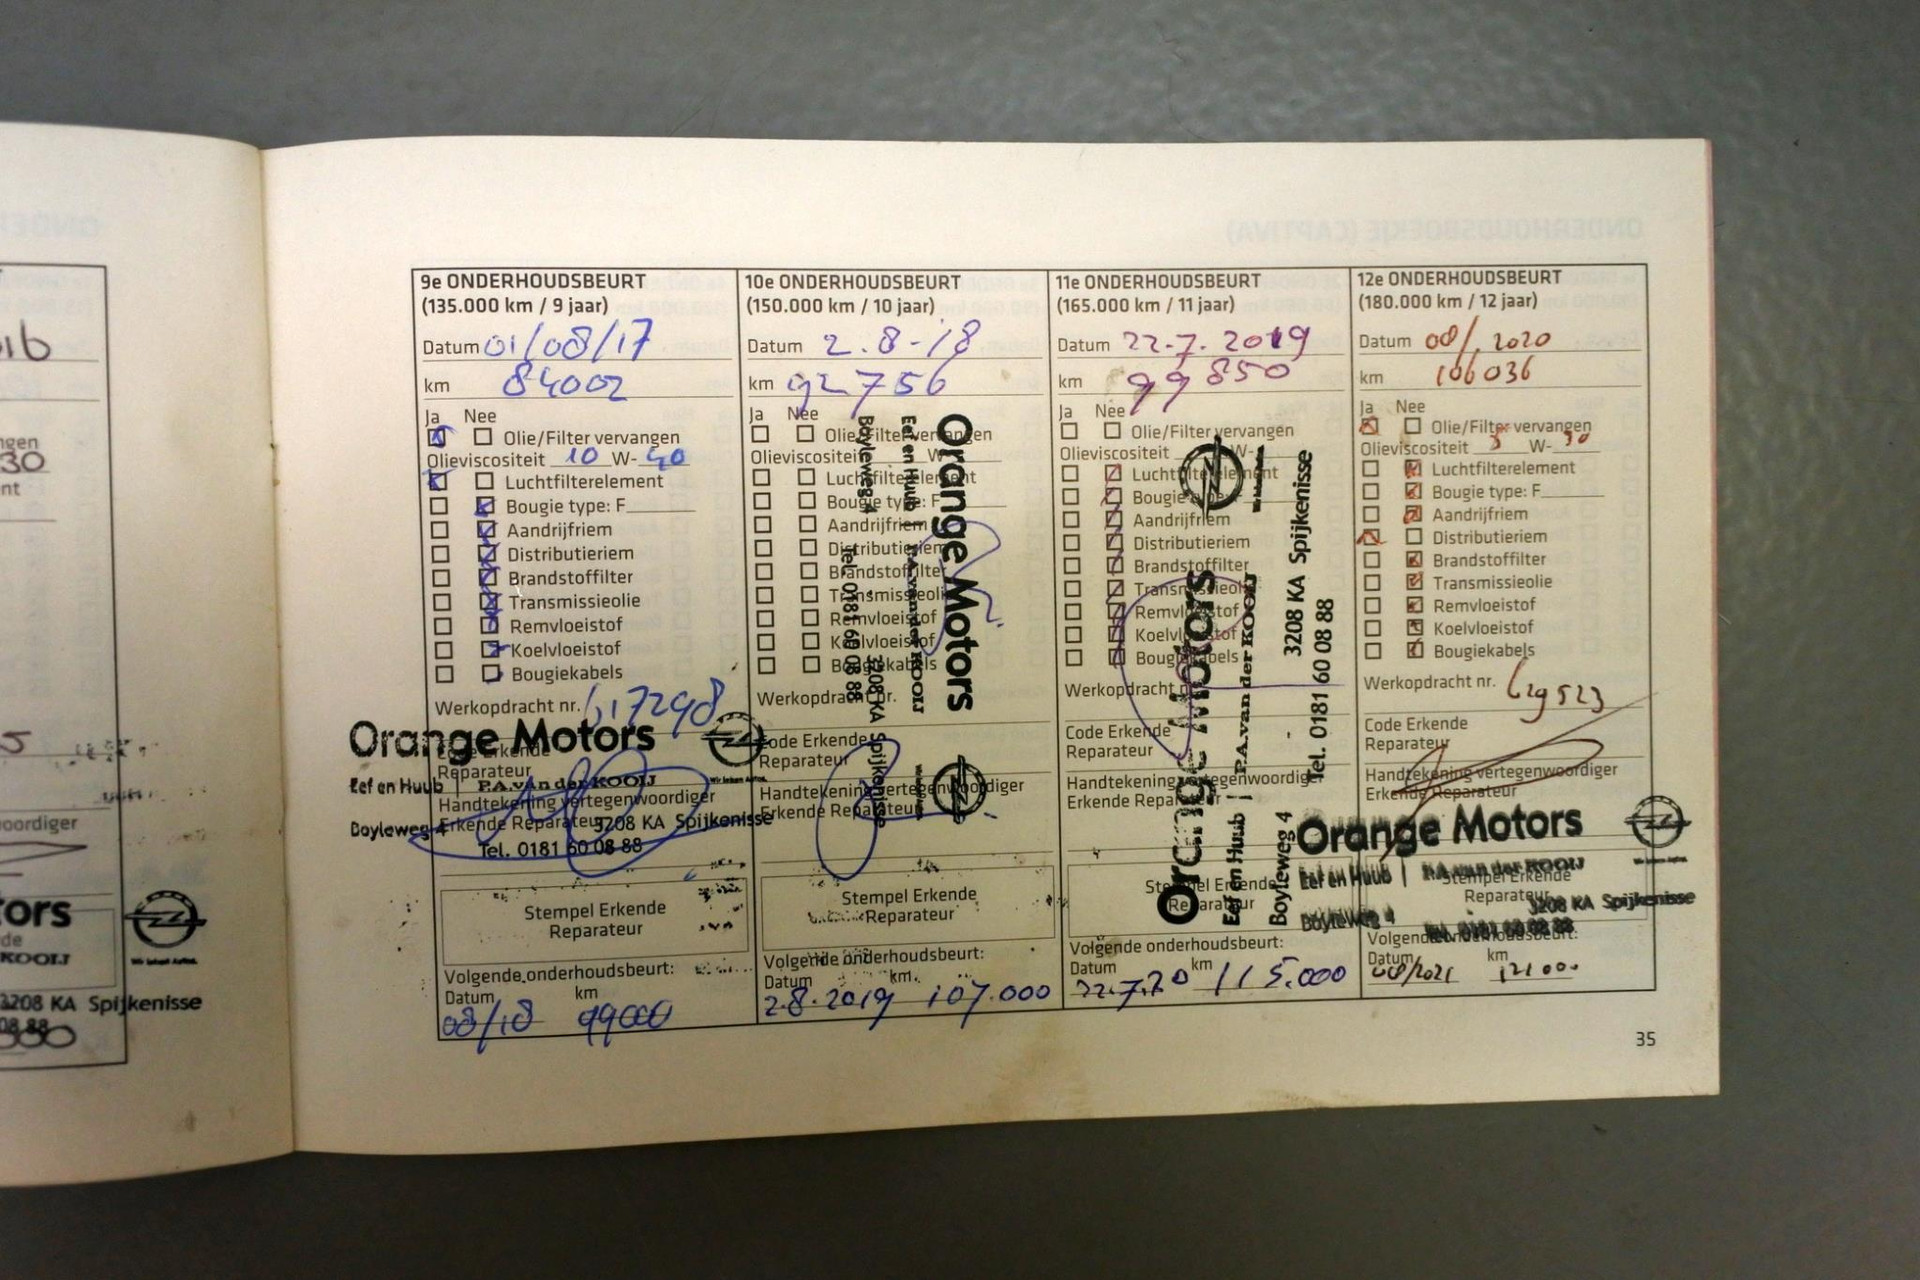 016
ngen
30
nt
5
oordiger
tors
de
KOOIJ
3208 KA Spijkenisse
08 88
ONDERHOUDSBOEKJE (CAPTIVA)
9e ONDERHOUDSBEURT
(135.000 km / 9 jaar)
Datum 01/08/17
km 84002
Ja Nee
Olie/Filter vervangen
Olieviscositeit 10 W- 40
Luchtfilterelement
Bougie type: F
Aandrijfriem
Distributieriem
Brandstoffilter
Transmissieolie
Remvloeistof
Koelvloeistof
Bougiekabels
Werkopdracht nr. 617298
Orange Motors
Code Erkende
Reparateur
Eef en Huub | P.A. van der KOOIJ
Handtekening vertegenwoordiger
Erkende Reparateur
Boyleweg 4 3208 KA Spijkenisse
Tel. 0181 60 08 88
Stempel Erkende
Reparateur
Volgende onderhoudsbeurt:
Datum km
08/18 99000
10e ONDERHOUDSBEURT
(150.000 km / 10 jaar)
Datum 2.8-18
km 92756
Ja Nee
Olie/Filter vervangen
Olieviscositeit W-
Luchtfilterelement
Bougie type: F
Aandrijfriem
Distributieriem
Brandstoffilter
Transmissieolie
Remvloeistof
Koelvloeistof
Bougiekabels
Werkopdracht nr.
Code Erkende
Reparateur
Handtekening vertegenwoordiger
Erkende Reparateur
Orange Motors
Eef en Huub P.A. van der KOOIJ
Boyleweg 4 3208 KA Spijkenisse
Tel. 0181 60 08 88
Stempel Erkende
Reparateur
Volgende onderhoudsbeurt:
Datum km
2.8.2019 107.000
11e ONDERHOUDSBEURT
(165.000 km / 11 jaar)
Datum 22.7.2019
km 99850
Ja Nee
Olie/Filter vervangen
Olieviscositeit W-
Luchtfilterelement
Bougie type:
Aandrijfriem
Distributieriem
Brandstoffilter
Transmissieolie
Remvloeistof
Koelvloeistof
Bougiekabels
Werkopdracht nr.
Code Erkende
Reparateur
Handtekening vertegenwoordiger
Erkende Reparateur
Orange Motors
Eef en Huub | P.A. van der KOOIJ
Boyleweg 4 - 3208 KA Spijkenisse
Tel. 0181 60 08 88
Stempel Erkende
Reparateur
Volgende onderhoudsbeurt:
Datum km
22.7.20 115.000
12e ONDERHOUDSBEURT
(180.000 km / 12 jaar)
Datum 08/2020
km 106036
Ja Nee
Olie/Filter vervangen
Olieviscositeit 5 W- 30
Luchtfilterelement
Bougie type: F
Aandrijfriem
Distributieriem
Brandstoffilter
Transmissieolie
Remvloeistof
Koelvloeistof
Bougiekabels
Werkopdracht nr. 629523
Code Erkende
Reparateur
Handtekening vertegenwoordiger
Erkende Reparateur
Orange Motors
Eef en Huub | P.A. van der KOOIJ
Stempel Erkende
Reparateur
Boyleweg 4 3208 KA Spijkenisse
Tel. 0181 60 08 88
Volgende onderhoudsbeurt:
Datum km
08/2021 121000
35